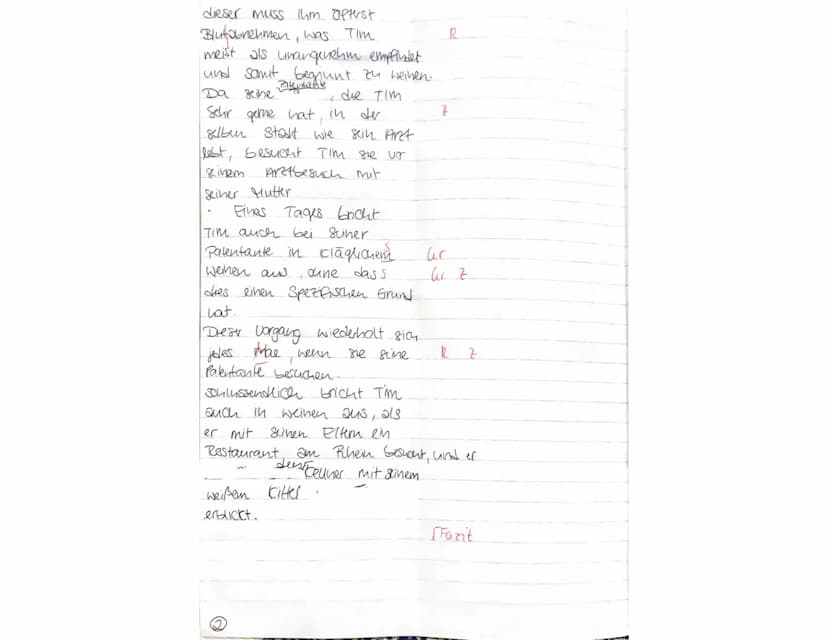 dieser muss ihm öfterst
Blutabnehmen, was Tim R
meist als unangenehm empfindet
und somit beginnt zu weinen.
Da seine Patentante, die Tim
Sehr gerne hat, in der Z
selben Stadt wie sein Arzt
lebt, besucht Tim sie vor
seinem Arztbesuch mit
seiner Mutter
Eines Tages bricht
Tim auch bei seiner
Patentante in kläglichem s Gr
weinen aus, ohne dass Gr Z
dies einen Spezifischen Grund
hat.
Dieser Vorgang wiederholt sich
jedes Mal, wenn sie seine R Z
Patentante besuchen.
schlussendlich bricht Tim
auch in weinen aus, als
er mit seinen Eltern ein
Restaurant, am Rhein besucht, und er
den Kellner mit seinem
weißem Kittel.
erblickt.
√Fazit
2